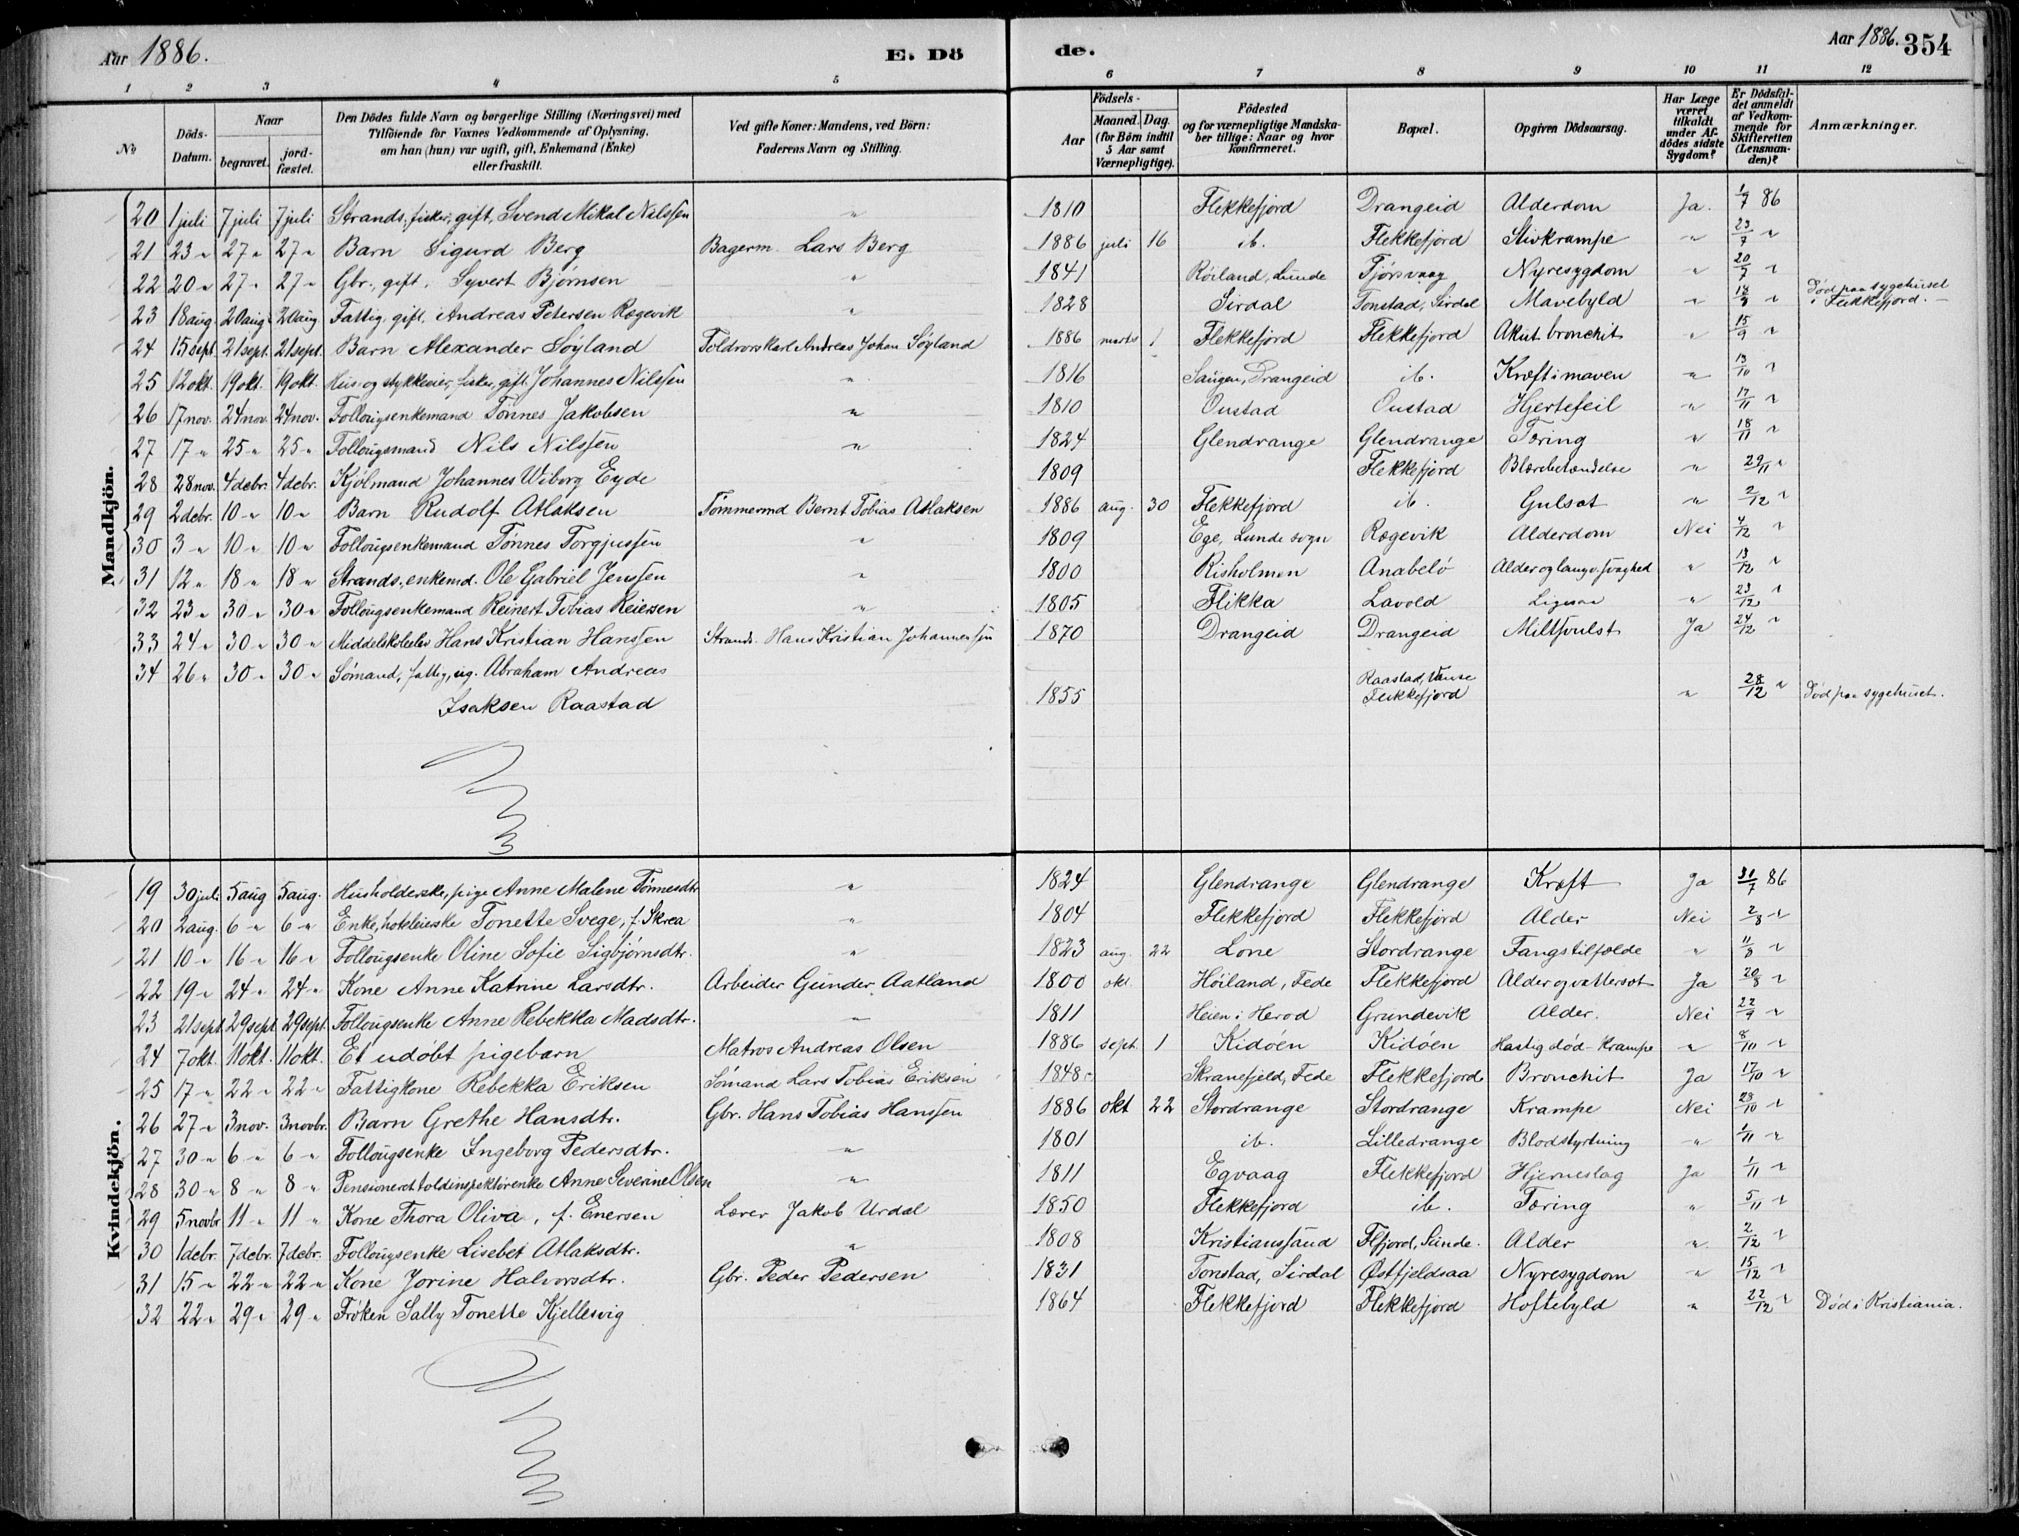 Aar 1886. E. Dö de. Aar 1886. 354
1 2 3 4 5 6 7 8 9 10 11 12
No
Döds-Datum.
Naar
begravet.
jord-fæstet.
Den Dödes fulde Navn og borgerlige Stilling (Næringsvei) med
Tilföiende for Voxnes Vedkommende af Oplysning,
om han (hun) var ugift, gift, Enkemand (Enke)
eller fraskilt.
Ved gifte Koner: Mandens, ved Börn:
Faderens Navn og Stilling.
Aar
Födsels-
Maaned. Dag.
(for Börn indtil
5 Aar samt
Værnepligtige).
Födested
og for værnepligtige Mandska-
ber tillige: Naar og hvor
konfirmeret.
Bopæl.
Opgiven Dödsaarsag.
Har Læge
været
tilkaldt
under Af-
dödes sidste
Sygdom?
Er Dödsfal-
det anmeldt
af Vedkom-
mende for
Skifteretten
(Lensman-
den)?
Anmærkninger.
Mandkjön.
20 1 juli 7 juli 7 juli Strands. fisker, gift, Svend Mikal Nilssen " 1810 Flekkefjord Drangeid Alderdom Ja. 1/7 86
21 23 " 27 " 27 " Barn Sigurd Berg Bagerm. Lars Berg 1886 juli 16 ib. Flekkefjord Stivkrampe " 23/7 "
22 20 " 27 " 27 " Gbr., gift, Syvert Bjørnsen " 1841 Røiland, Lunde Tjørsvaag Nyresygdom " 20/7 "
23 18 aug 20 aug 20 aug. Fattig, gift, Andreas Petersen Rægevik " 1828 Sirdal Tonstad, Sirdal Mavebyld " 18/8 " Død paa sygehuset i Flekkefjord. -
24 15 sept. 21 sept. 21 sept. Barn Alexander Søyland Toldrorskarl Andreas Johan Søyland 1886 marts 1 Flekkefjord Flekkefjord Akut bronchit " 15/9 "
25 12 okt. 19 okt. 19 okt. Hus- og stykkeier, fisker, gift Johannes Nilssen " 1816 Saugen, Drangeid ib. Kræft i maven " 13/10 "
26 17 nov. 24 nov. 24 nov. Follougsenkemand Tønnes Jakobsen " 1810 Oustad Oustad Hjertefeil " 17/11 "
27 17 " 25 " 25 " Follougsmand Nils Nilssen " 1824 Glendrange Glendrange Tæring " 18/11 "
28 28 nov. 4 debr. 4 debr. Kjølmand Johannes Wiborg Eyde 1809 Flekkefjord Blærebetændelse " 29/11 "
29 2 debr. 10 " 10 " Barn Rudolf Atlaksen Tømmermd Bernt Tobias Atlaksen 1886 aug. 30 Flekkefjord ib. Gulsot " 2/12 "
30 3 " 10 " 10 " Follougsenkemand Tønnes Torgjussen " 1809 Ege, Lunde sogn Rægevik Alderdom Nei 4/12 "
31 12 " 18 " 18 " Strands., enkemd. Ole Gabriel Jenssen " 1800 Risholmen Anabelø Alder og langv. svaghed " 13/12 "
32 23 " 30 " 30 " Follougsenkemand Reinert Tobias Reiersen " 1805 Flikka Lavold Ligesaa " 23/12 "
33 24 " 30 " 30 " Middelskoleelev Hans Kristian Hanssen Strands. Hans Kristian Johannessen 1870 Drangeid Drangeid Miltsvulst Ja 24/12 "
34 26 " 30 " 30 " Sømand, fattig, ug. Abraham Andreas
Isaksen Raastad 1855 Raastad, Vanse Flekkefjord " 28/12 " Død paa sygehuset.
Kvindekjön.
19 30 juli 5 aug 5 aug. Husholderske, pige Anne Malene Tønnesdtr. " 1824 Glendrange Glendrange Kræft Ja 31/7 86
20 2 aug. 6 " 6 " Enke, hoteleierske Tonette Svege, f. Skrea " 1804 Flekkefjord Flekkefjord Alder Nei 2/8 "
21 10 " 16 " 16 " Follougsenke Oline Sofie Sigbjørnsdtr. " 1823 aug. 22 Lone Stordrange Fangstilfælde " 11/8 "
22 19 " 24 " 24 " Kone Anne Katrine Larsdtr. Arbeider Gunder Aatland 1800 okt. Høiland, Fede Flekkefjord Alder og vattersot Ja 20/8 "
23 21 sept. 29 sept. 29 sept. Follougsenke Anne Rebekka Madsdtr. " 1811 Heien i Herod Grundevik Alder. Nei 22/9 "
24 7 okt. 11 okt. 11 okt. Et udøbt pigebarn Matros Andreas Olsen 1886 sept. 1 Kidøen Kidøen Hastig død - Krampe " 8/10 "
25 17 " 22 " 22 " Fattigkone Rebekka Eriksen Sømand Lars Tobias Eriksen 1848 Skranefjeld, Fede Flekkefjord Bronchit Ja 17/10 "
26 27 " 3 nov. 3 novbr. Barn Grethe Hansdtr. Gbr. Hans Tobias Hanssen 1886 okt 22 Stordrange Stordrange Krampe Nei 28/10 "
27 30 " 6 " 6 " Follougsenke Ingeborg Pedersdtr. " 1801 ib. Lilledrange Blodstyrtning " 1/11 "
28 30 " 8 " 8 " Pensioneret toldinspektørenke Anne Severine Olsen " 1811 Egvaag Flekkefjord Hjerneslag Ja 1/11 "
29 5 novbr 11 " 11 " Kone Thora Oliva, f. Enersen Lærer Jakob Urdal 1850 Flekkefjord ib. Tæring " 5/11 "
30 1 debr. 7 debr. 7 debr. Follougsenke Lisebet Atlaksdtr. " 1808 Kristianssand Flfjord, Sunde. Alder " 2/12 "
31 15 " 22 " 22 " Kone Jorine Halvorsdtr. Gbr. Peder Pedersen 1831 Tonstad, Sirdal Østfjeldsaa Nyresygdom " 15/12 "
32 22 " 29 " 29 " Frøken Sally Tonette Kjellesvig 1864 Flekkefjord Flekkefjord Hoftebyld " 22/12 " Død i Kristiania.